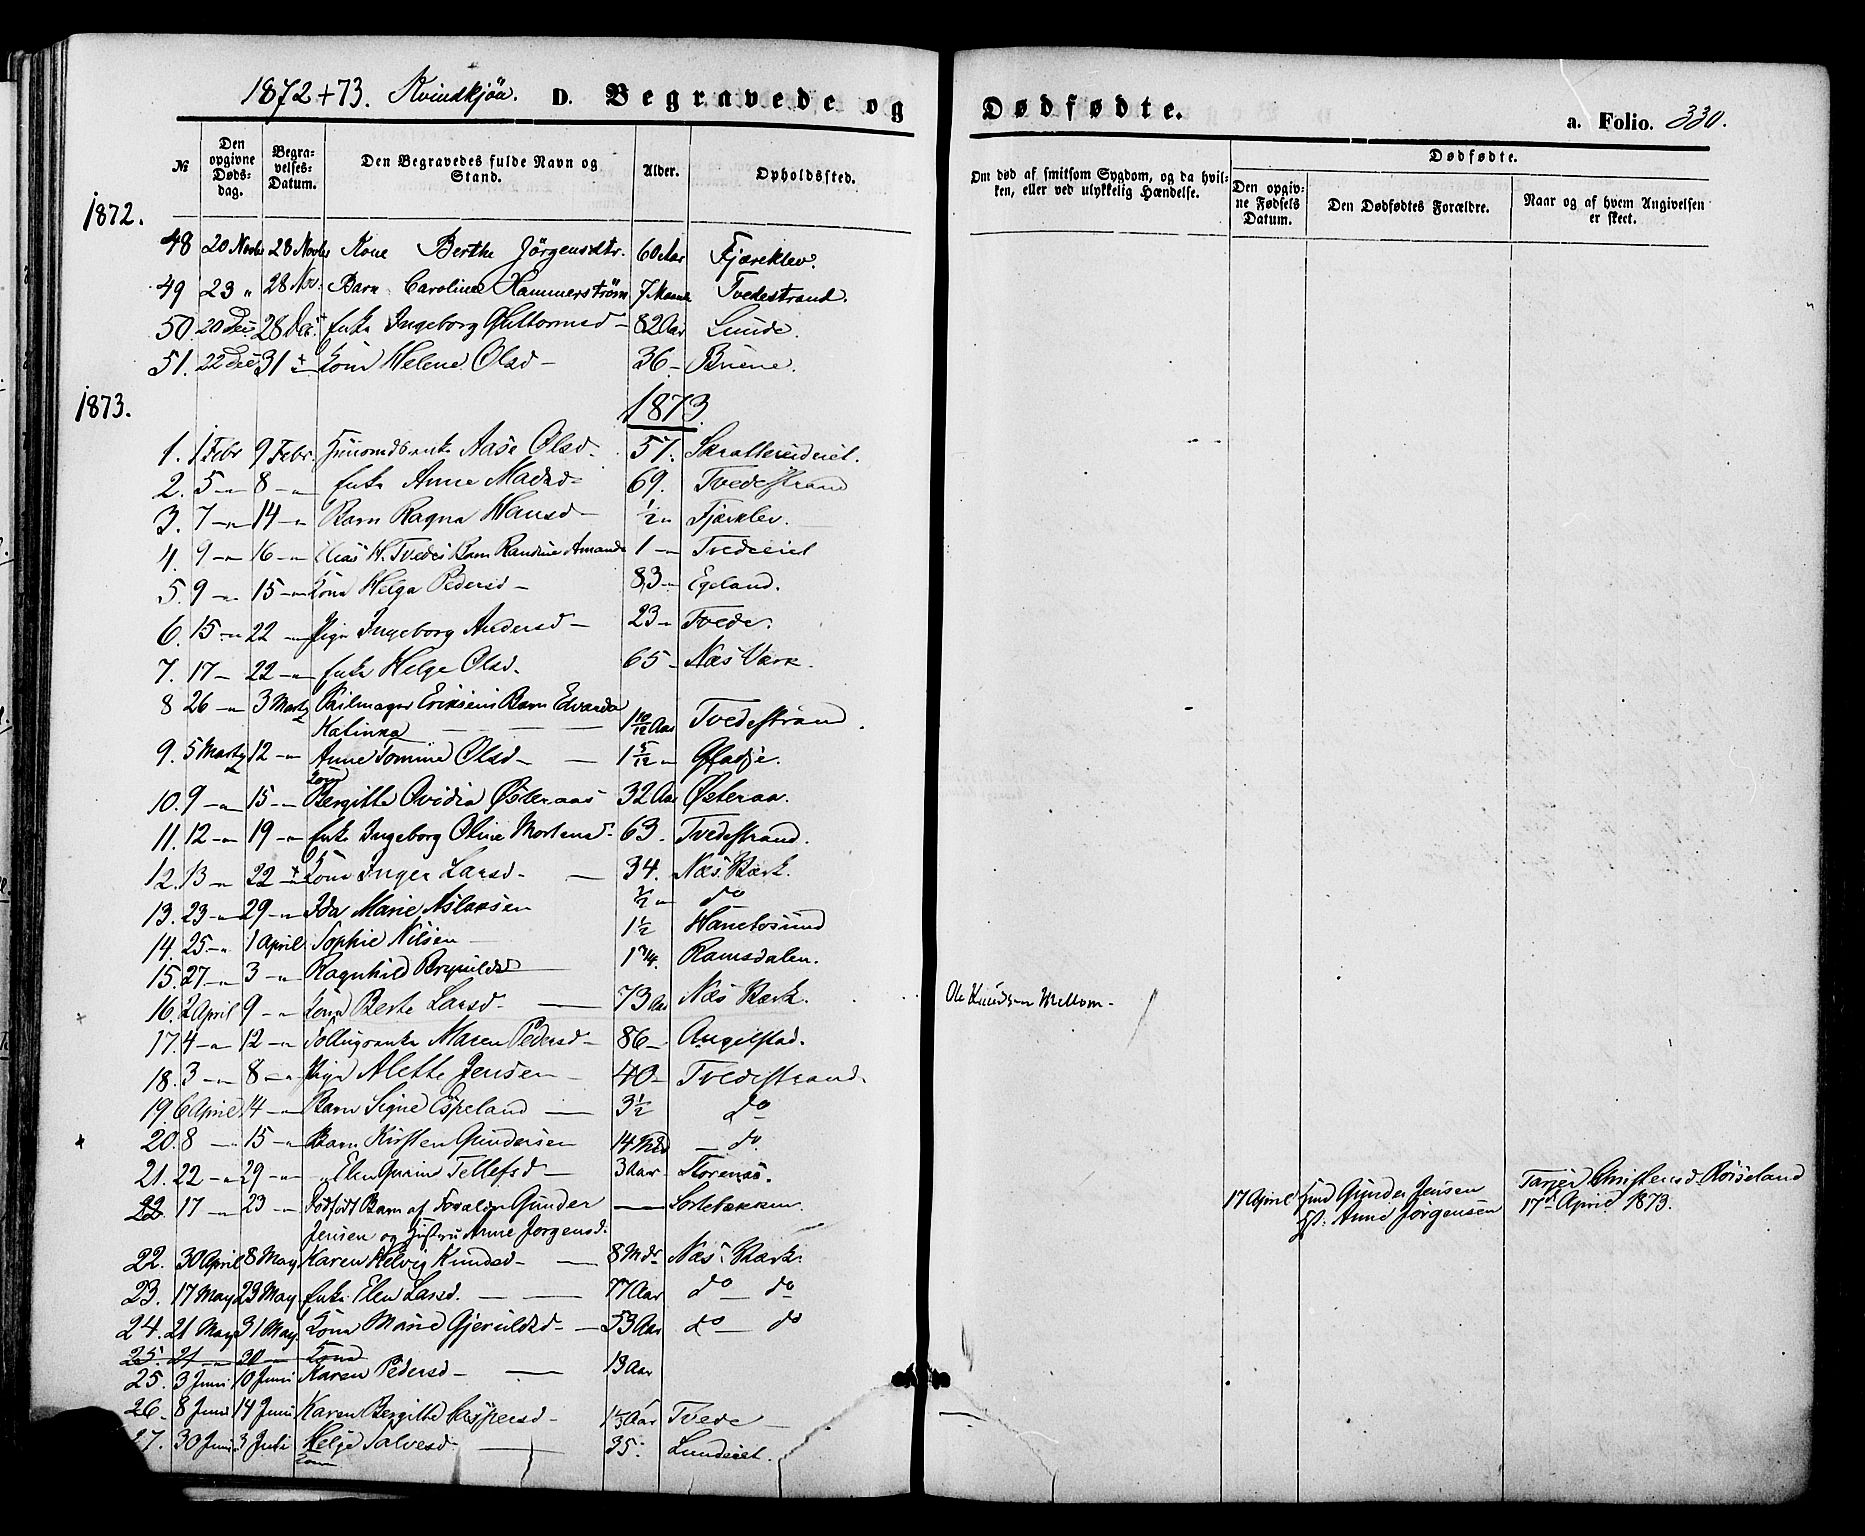 1872+73. Kvindkjön. D. Begravede og Dødfødte. a. Folio. 330.
№ Den opgivne Døds-dag. Begra-velses-Datum. Den Begravedes fulde Navn og Stand. Alder. Opholdssted. Om død af smitsom Sygdom, og da hvil-ken, eller ved ulykkelig Hændelse. Dødfødte. Den opgiv-ne Fødsels Datum. Den Dødfødtes Forældre. Naar og af hvem Angivelsen er skeet.
1872.
48 20 Novbr 28 Novbr Kone Berthe Jörgensdtr. 60 Aar Fjæreklev.
49 23 " 28 Nov. Barn Caroline Hammerström 7 Maan Tvedestrand.
50. 20 Dec 28 Dec. Enke Ingeborg Guttormsd - 82 Aar Lunde.
51. 22 Dec 31 - Kone Helene Olsd - 36 - Briene.
1873. 1873
1. 1 Febr 9 Febr. Huusmdsenke Aase Olsd. 57. Skratterudeiet.
2. 5 -"- 8 -"- Enke Anne Madsd- 69. Tvedestrand
3. 7 -"- 14 -"- Barn Ragna Hansd - ½ " Fjærklev.
4. 9 -"- 16 -"- Elias H. Tvedes Barn Randine Amanda 1 -" Tvedeeiet
5. 9 -"- 15 -"- Kone Helga Pedersd - 83 -" Egeland.
6. 15 -"- 22 -"- Pige Ingeborg Andersd - 23 -" Tvede.
7. 17 - 22 -"- Enke Helge Olsd. 65 - Næs Værk.
8 26 -"- 3 Marts Eriksens Barn Edvarda
Katinka - - - 1 10/12 Aar Tvedestrand.
9. 5 Marts 12 -"- Anne Tomine Olsd - - 1 5/12 " Gladje.
10. 9 -"- 15 -"- Kone Bergitte Ovidia Østeraas 32 Aar Østeraa.
11. 12 -"- 19 -"- Enke Ingeborg Oline Mortensd. 63. Tvedestrand.
12. 13 -"- 22 - Kone Inger Larsd. - 34. Næs. Værk.
13. 23 -"- 29 -"- Ida Marie Aslaksen ½ " do
14. 25 -"- 1 April Sophie Nilsen - 1 ½ Hanetosund
15. 27 -"- 3 -"- Ragnhild Brynildsd 1 ¾. Ramsdalen.
16. 2 April 9 -"- Kone Berte Larsd. - 73 Aar Næs Værk. Ole Knudsen Mellom-
17. 4 -"- 12 -"- Maren Pedersd - 86 - Angelstad.
18. 3 -"- 8 -"- Pige Alette Jensen - 40 - Tvedestrand.
19. 6 April 14 -"- Barn Signe Espeland - 3 ½ do
20. 8 -"- 15 -"- Barn Kirsten Gundersen 14 Md - do
21. 22 -"- 29 -"- " Elen Gurine Tellefsd - 3 Aar
22 17 -"- 23 -"- Dødfødt Barn af Forældre Gunder - Sortebakken. 17 April Gunder Jensen Tarjer Christensen Röiseland
Jensen og Hustru Anne Jörgensd. H: Anne Jörgensen 17de April 1873.
22. 30 April 8 May Karen Helvig Knudsd - - 8 Mdr. Næs. Værk.
23. 17 May 23 May. Enke Elen Larsd. - - 77 Aar do - do
24. 21 May 31 May. Kone Marie Gjeruldsd - - 53 Aar do - do
25. 21 -"- 30 -"- Kone
25. 3 Juni 10 Juni Karen Pedersd - - 13 Aar
26 - 8 Juni 14 Juni Karen Bergitte Caspersd - Tvede -
27. 30 Juni 3 Juli Helje Salvesd - 35. Lundeiet.
Kone